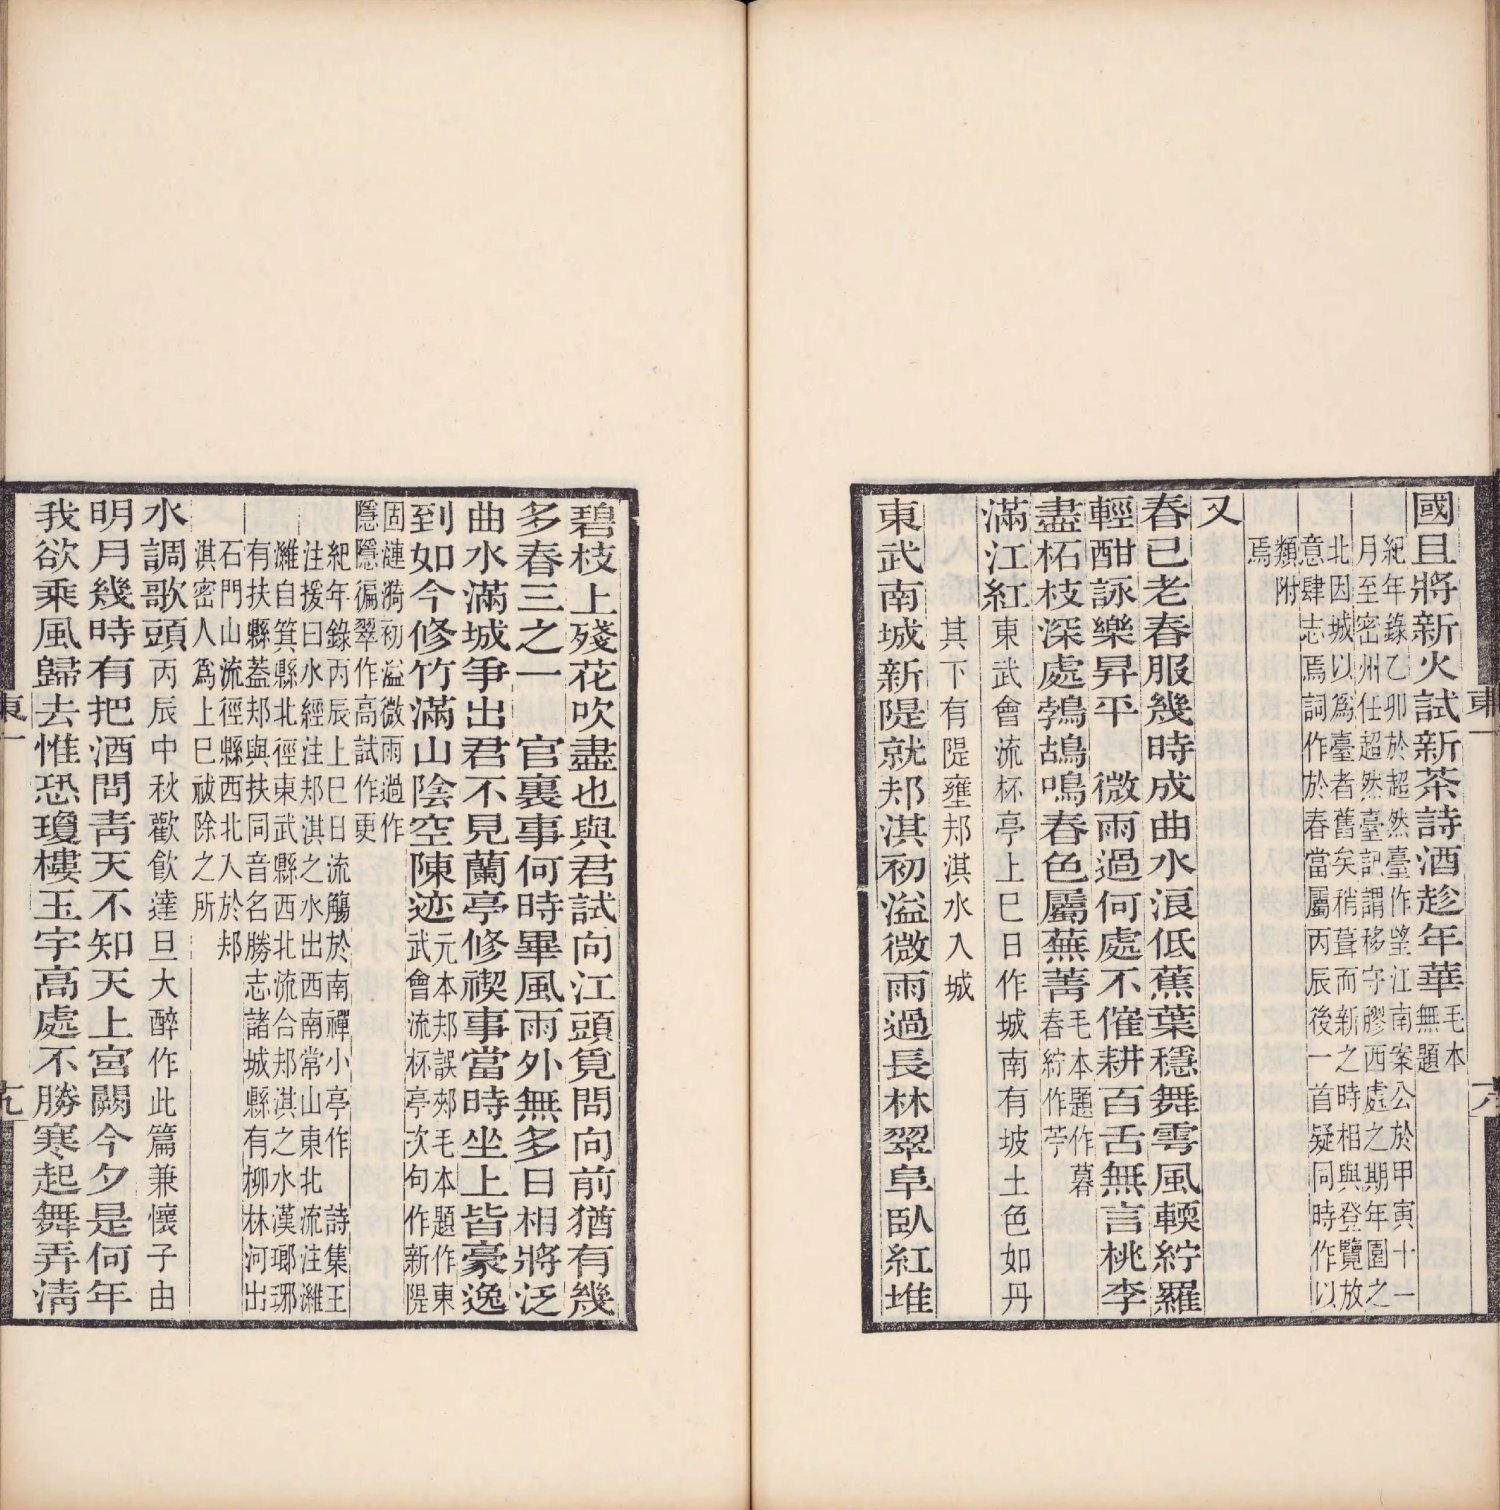 國且將新火試新茶詩酒趁年華毛本
無題
紀年錄乙卯於超然臺作望江南案公於甲寅十一
月至密州任超然臺記謂移守膠西處之期年園之
北因城以爲臺者舊矣稍葺而新之時相與登覽放
意肆志焉詞作於春當屬丙辰後一首疑同時作以
類附
焉
又
春已老春服幾時成曲水浪低蕉葉穩舞雩風輭紵羅
輕酣詠樂昇平　微雨過何處不催耕百舌無言桃李
盡柘枝深處鵓鴣鳴春色屬蕪菁毛本題作暮
春紵作苧
滿江紅東武會流杯亭上巳日作城南有坡土色如丹
其下有隄壅邞淇水入城
東武南城新隄就邞淇初溢微雨過長林翠阜臥紅堆
東一
六
碧枝上殘花吹盡也與君試向江頭覓問向前猶有幾
多春三之一　官裏事何時畢風雨外無多日相將泛
曲水滿城爭出君不見蘭亭修禊事當時坐上皆豪逸
到如今修竹滿山陰空陳迹元本邞誤郟毛本題作東
武會流杯亭次句作新隄
固漣漪初溢微雨過作
隱隱徧翠作高試作更
紀年錄丙辰上巳日流觴於南禪小亭作　詩集王
注援曰水經注邞淇之水出西南常山東北流注濰
濰自箕縣北徑東武縣西北流合邞淇之水漢瑯琊
有扶縣蓋邞與扶同音名勝志諸城縣有柳林河出
石門山流徑縣西北人於邞
淇密人爲上巳祓除之所
水調歌頭丙辰中秋歡飲達旦大醉作此篇兼懷子由
明月幾時有把酒問靑天不知天上宮闕今夕是何年
我欲乘風歸去惟恐瓊樓玉宇高處不勝寒起舞弄淸
東一
九